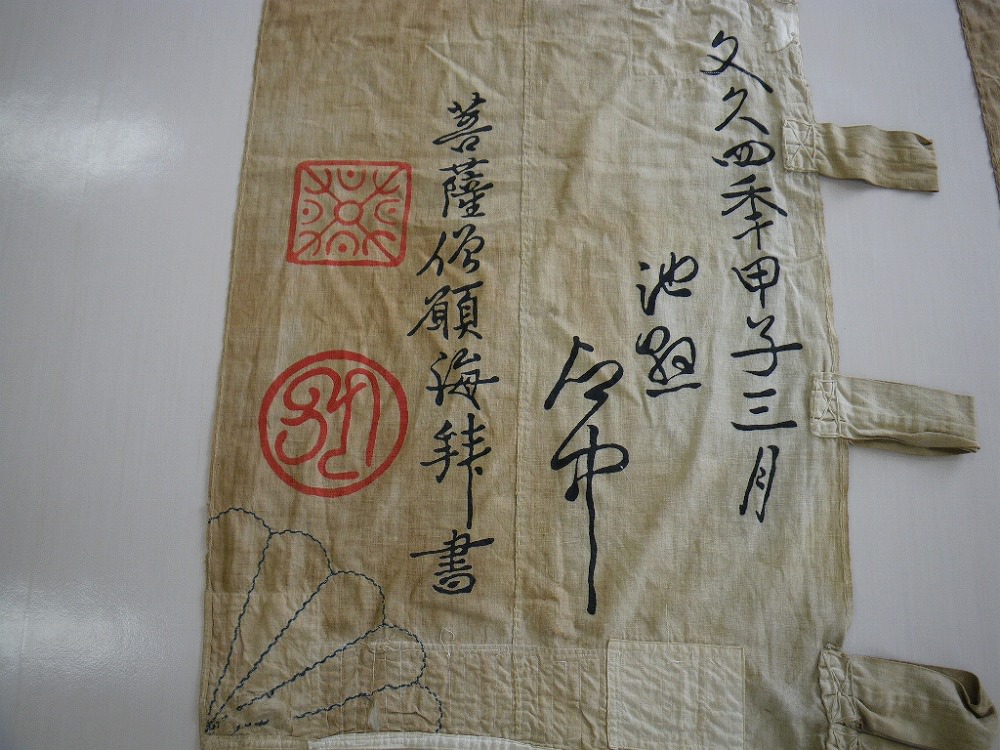 文久四季甲子三月
池
中
菩薩僧願海拜書